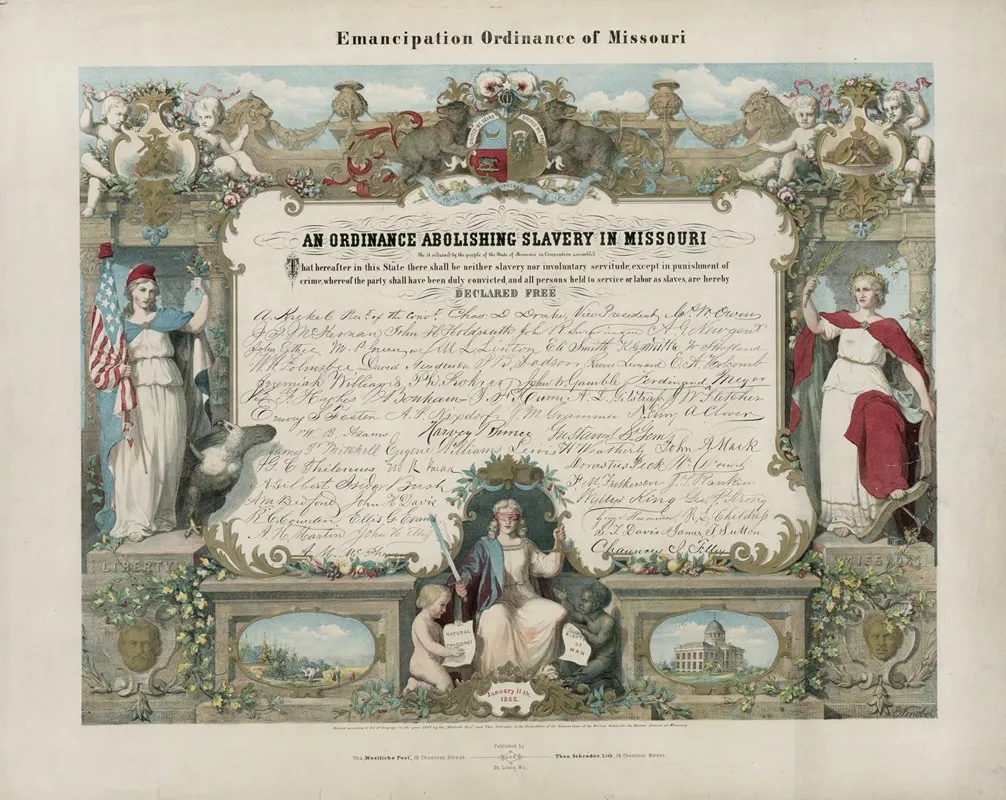 Emancipation Ordinance of Missouri
AN ORDINANCE ABOLISHING SLAVERY IN MISSOURI
Be it ordained by the people of the State of Missouri in Convention assembled
That hereafter in this State there shall be neither slavery nor involuntary servitude, except in punishment of
crime, whereof the party shall have been duly convicted, and all persons held to service or labor as slaves, are hereby
DECLARED FREE
A. Krekel Pres't of the Conv't. Chas. D. Drake, Vice President W. Owens
McKernan John H. Holdsworth John A. G. Newgent
John Esther M. P. Green M. L. Linton Eli Smith K. Smith W. Holland
David J. B. Dodson Reeves Leonard E. A. Holcomb
Jeremiah Williams P. W. Rohrer John W. Gamble Ferdinand Meyer
F. Hughes Bonham T. F. Hume A. L. Gilstrap J. W. Fletcher
Emory S. Foster A. F. Nixdorf J. M. Grammer Henry A. Clover
W. B. Adams Harvey Bunce Gustavus St. Gem
James T. Mitchell Eugene Williams Lewis H. Weatherby John A. Mack
G. C. Thilenius Dorastus Peck Wm.
Gilbert Isidor Bush F. M. Fulkerson J. T. Rankin
A. M. Bedford John H. Davis Willis King Geo. P. Strong
R. C. Cowden Ellis G. Evans Husmann R. L. Childress
A. H. Martin John H. Ellis S. T. Davis James T. Sutton
A. M. Chauncey I. Filley
LIBERTY
MISSOURI
NATURAL
PHILOSOPHY
RIGHTS
OF
MAN
January 11th,
1865.
Published by
The "Westliche Post", 18 Chestnut Street
Theo. Schrader, Lith., 16 Chestnut Street
St. Louis, Mo.